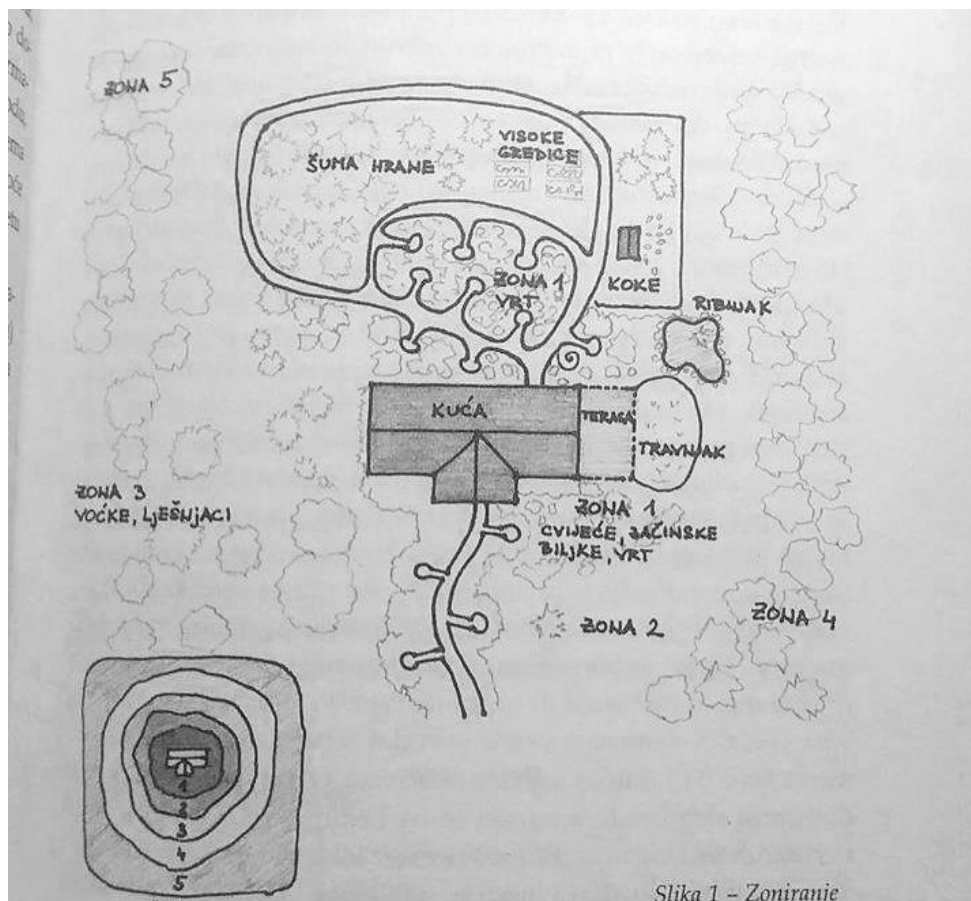 ZONA 5
ŠUMA HRANE
VISOKE
GREDICE
ZONA 1
VRT
KOKE
RIBNJAK
KUĆA
TERASA
TRAVNJAK
ZONA 3
VOĆKE, LJEŠNJACI
ZONA 1
CVIJEĆE, ZAČINSKE
BILJKE, VRT
ZONA 2
ZONA 4
1
2
3
4
5
Slika 1 – Zoniranje